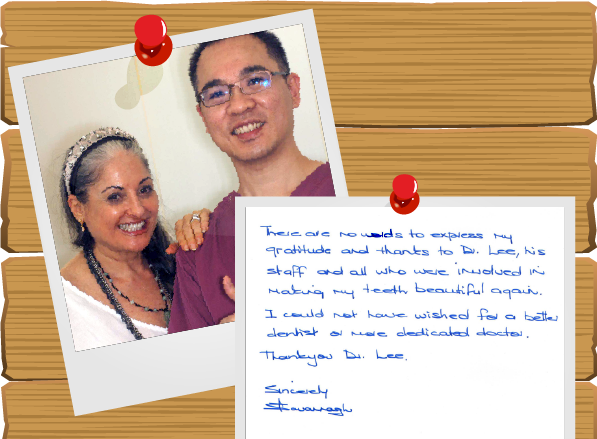 There are no words to express my
gratitude and thanks to Dr. Lee, his
staff and all who were involved in
making my teeth beautiful again.
I could not have wished for a better
dentist or more dedicated doctor.
Thankyou Dr. Lee.
Sincerely
SKavanagh